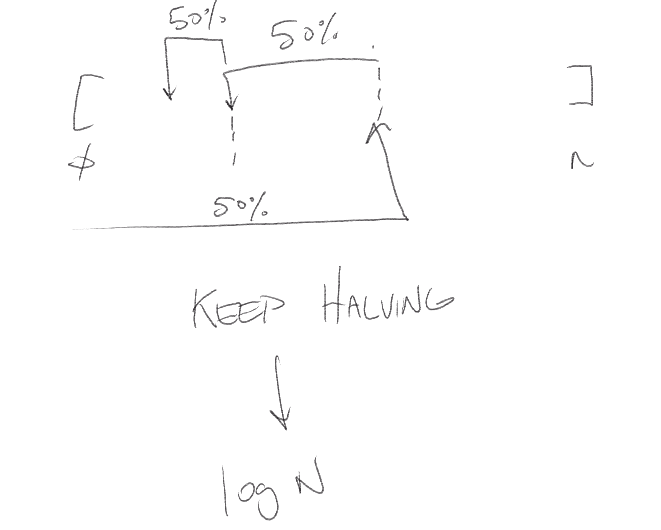 50%
50%
[ ]
0 n
50%
KEEP HALVING
log N